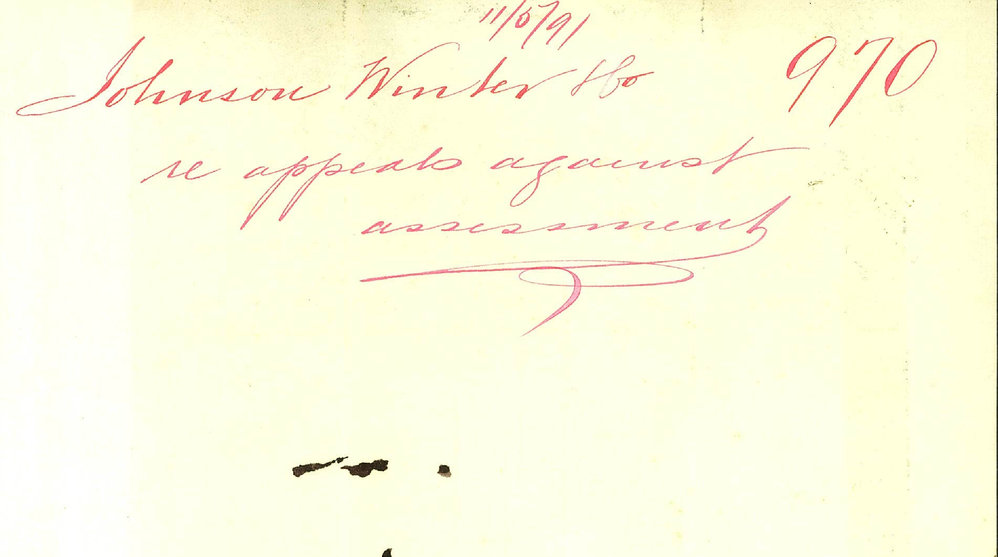 11/5/91
Johnson Winter & Co 970
re appeals against
assessment